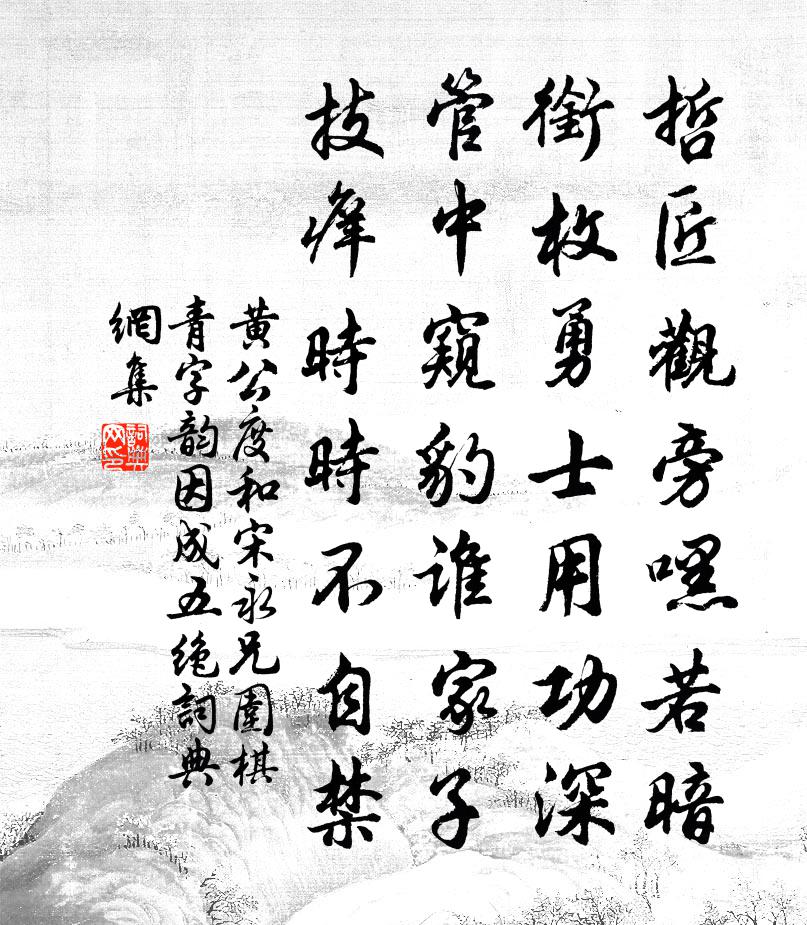 哲匠觀旁嘿若暗
銜枚勇士用功深
管中窺豹誰家子
技癢時時不自禁
黃公度和宋永兄圍棋
青字韵因成五绝詞典
網集